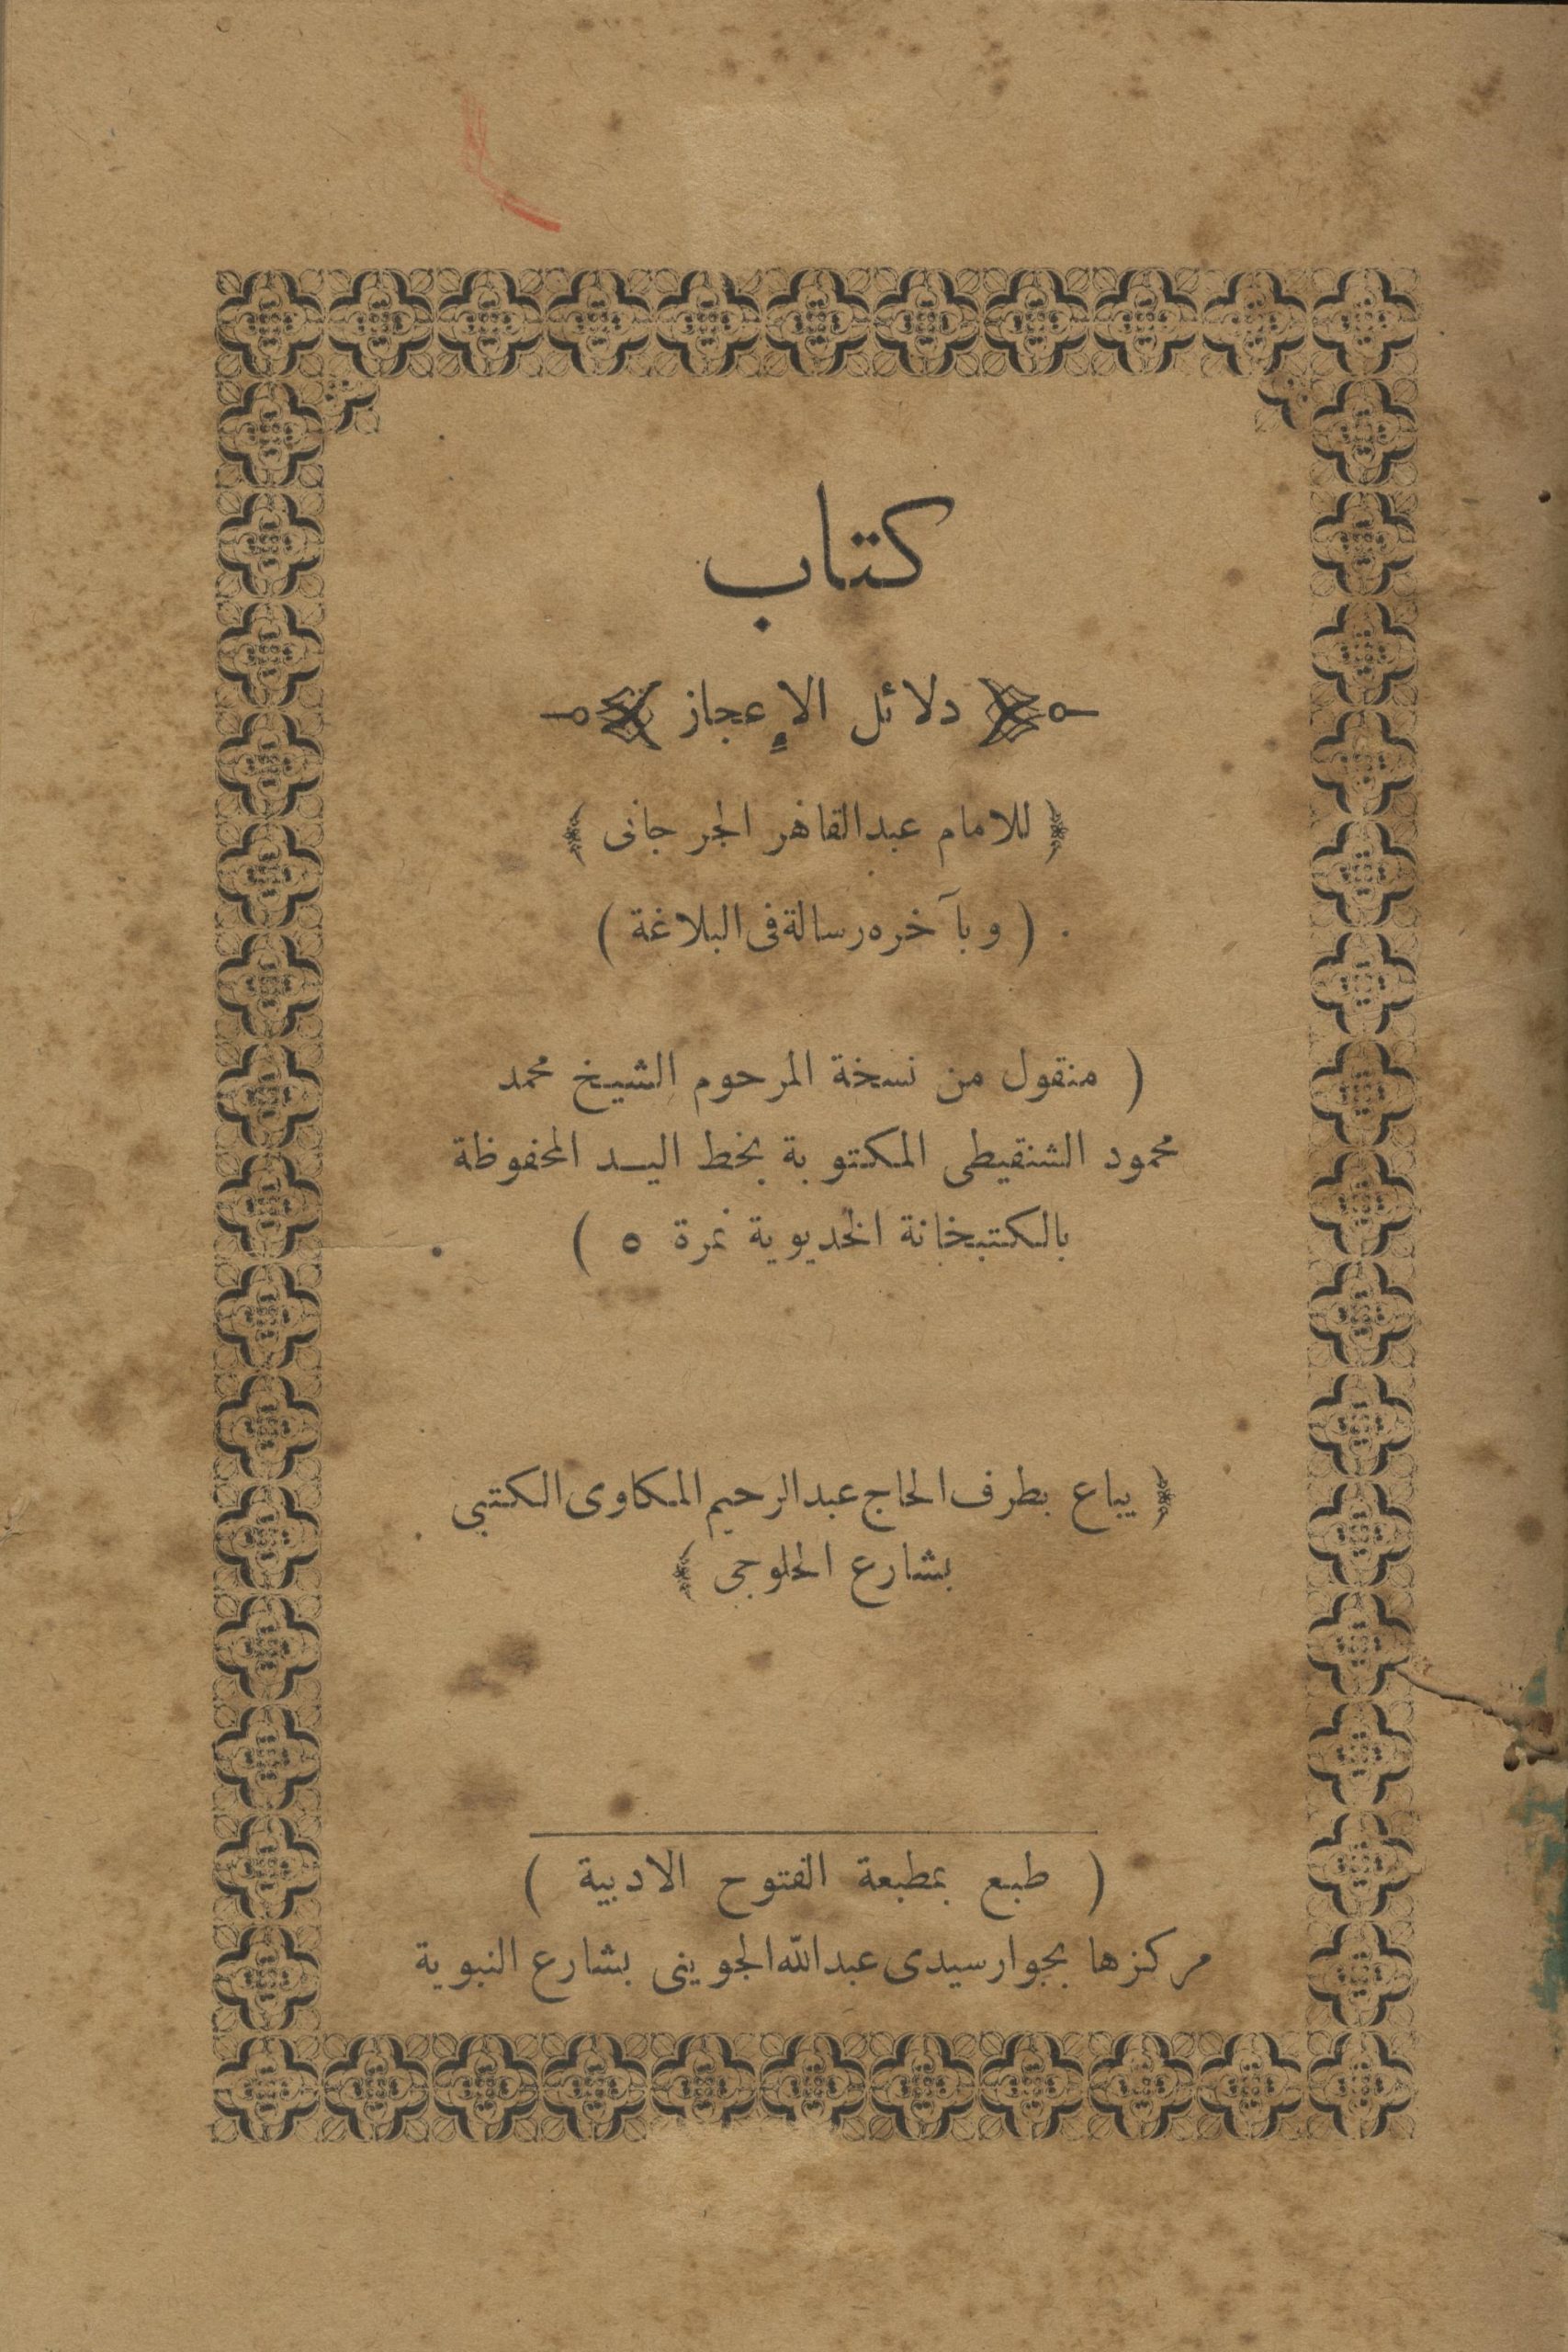 كتاب
دلائل الإعجاز
﴿ للامام عبدالقاهر الجرجانى ﴾
( وبآخره رسالة فى البلاغة )
( منقول من نسخة المرحوم الشيخ محمد
محمود الشنقيطى المكتوبة بخط اليد المحفوظة
بالكتبخانة الخديوية نمرة ٥ )
﴿ يباع بطرف الحاج عبدالرحيم المكاوى الكتبي
بشارع الحلوجى ﴾
( طبع بمطبعة الفتوح الادبية )
مركزها بجوار سيدى عبدالله الجوينى بشارع النبوية